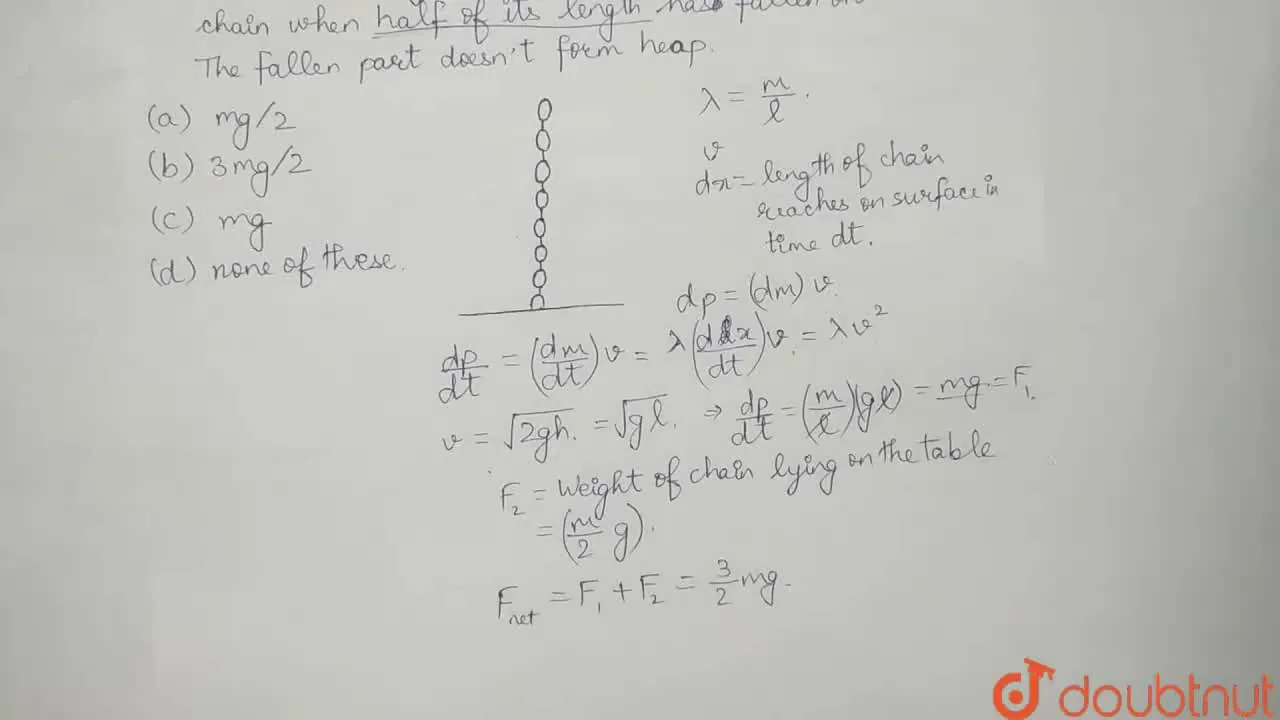 chain when half of its length has fallen on
The fallen part doesn't form heap.
(a) mg/2
(b) 3mg/2
(c) mg
(d) none of these.
λ = m/l.
v
dx = length of chain
reaches on surface in
time dt.
dp = (dm) v
dp/dt = (dm/dt) v = λ (dx/dt) v = λv²
v = √2gh. = √gl. ⇒ dp/dt = (m/l)(gl) = mg. = F₁.
F₂ = Weight of chain lying on the table
= (m/2 g).
Fnet = F₁ + F₂ = 3/2 mg.
doubtnut